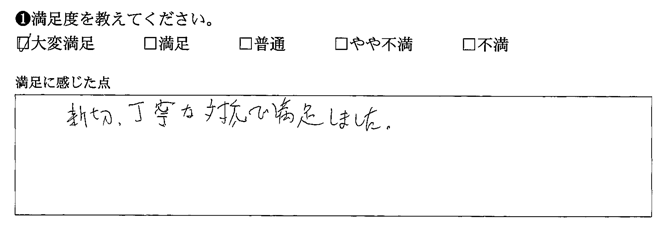 ❶満足度を教えてください。
☑大変満足 □満足 □普通 □やや不満 □不満
満足に感じた点
新切、丁寧な対抗で満足しました。